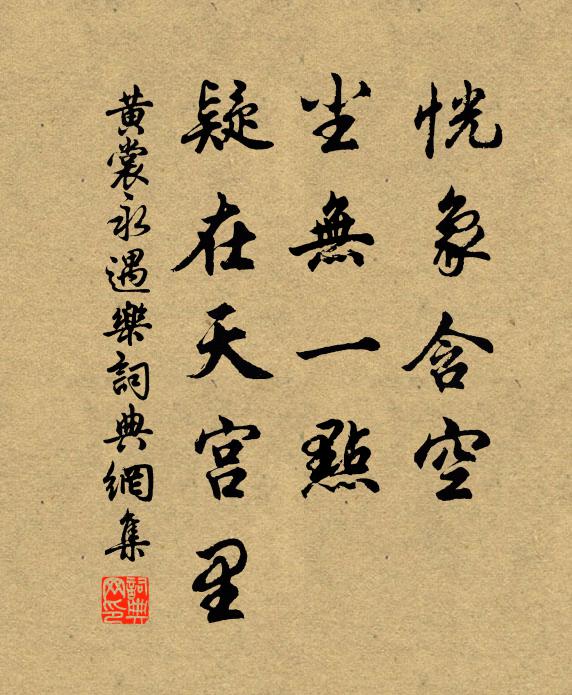 恍象含空
尘無一點
疑在天宫里
黄裳永遇樂詞典網集
詞典
网印